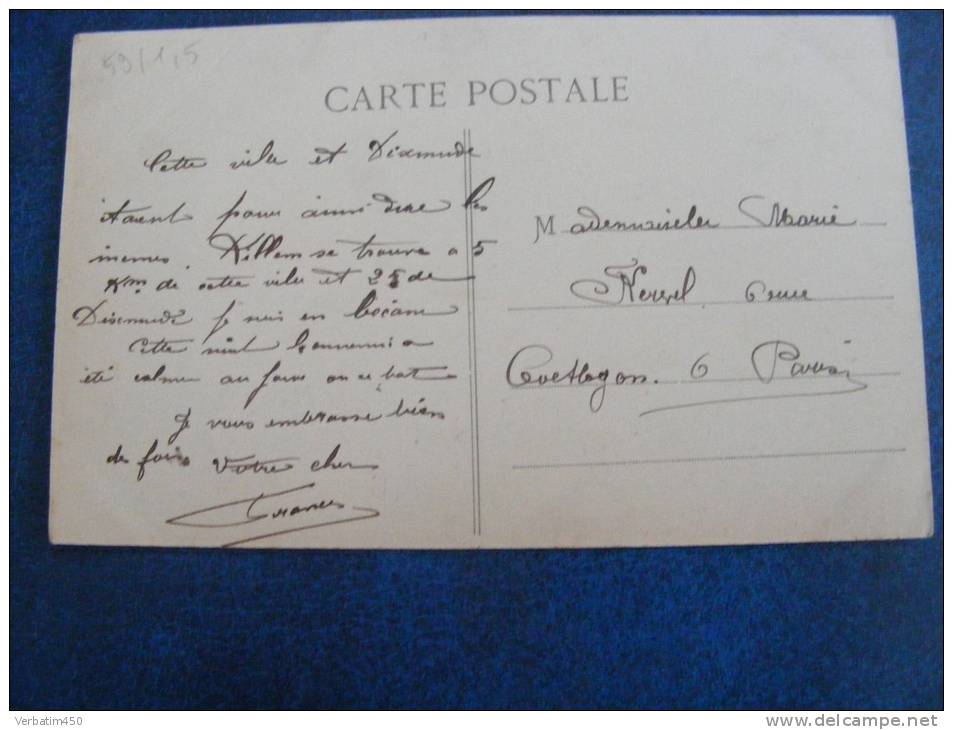 59/1,5
CARTE POSTALE
Cette ville et Dixmude
étaient pour ainsi dire les
mêmes. Killem se trouve a 5
Km. de cette ville et 25 de
Dixmude je suis en bécane
Cette nuit
été calme au front on ce bat
Je vous embrasse bien
des fois Votre cher
Francis
Mademoiselle Marie
Kervel 6 rue
Coetlogon. 6 Paris
Verbatim450
www.delcampe.net